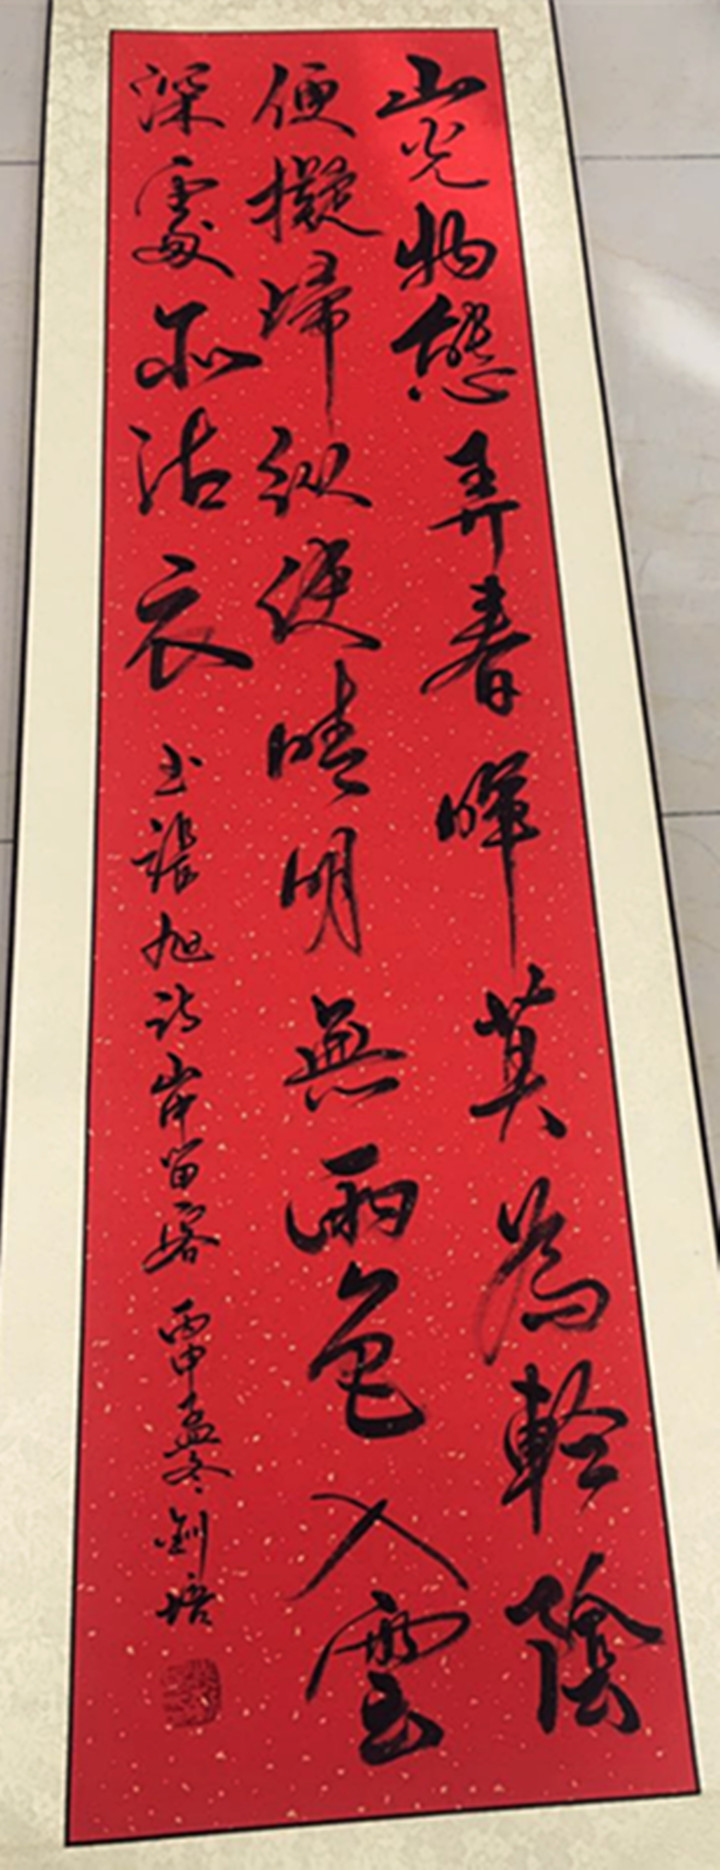 山光物態弄春暉莫為輕陰
便擬歸纵使晴明無雨色入雲
深處亦沾衣 书張旭诗山中留客 丙申孟冬 培